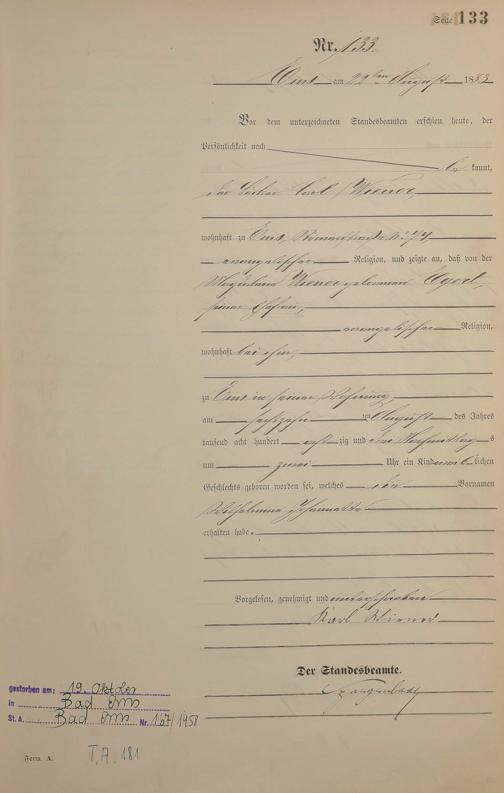 Seite 133
Nr. 133.
Ems am 22ten August 1883
Vor dem unterzeichneten Standesbeamten erschien heute, der
Persönlichkeit nach
be kannt,
der Carl Wiener,
wohnhaft zu Ems, Römerstraße No 74
evangelischer Religion, und zeigte an, daß von der
Wiener geborenen
seiner Ehefrau,
evangelischer Religion,
wohnhaft bei ihm,
zu Ems in seiner Wohnung,
am sechszehn ten August des Jahres
tausend acht hundert acht zig und drei Nachmittags
um zwei Uhr ein Kind weib lichen
Geschlechts geboren worden sei, welches die Vornamen
Wilhelmine
erhalten habe.
Vorgelesen, genehmigt und unterschrieben
Karl Wiener
Der Standesbeamte.
gestorben am: 19. Oktober
in Bad Ems
St. A. Bad Ems Nr. 167/1958
Form. A.
T.A. 181